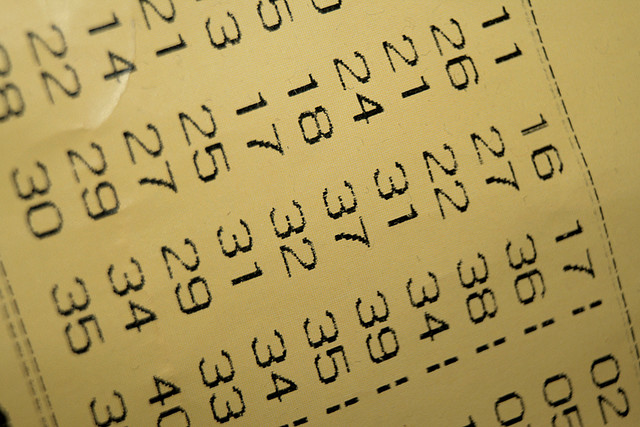 11 16 17 02
26 27 36 05
21 22 38 0
24 31 34
18 37 39
17 32 35
25 31 34
21 27 29 33
14 29 34 40
22 30 35
28